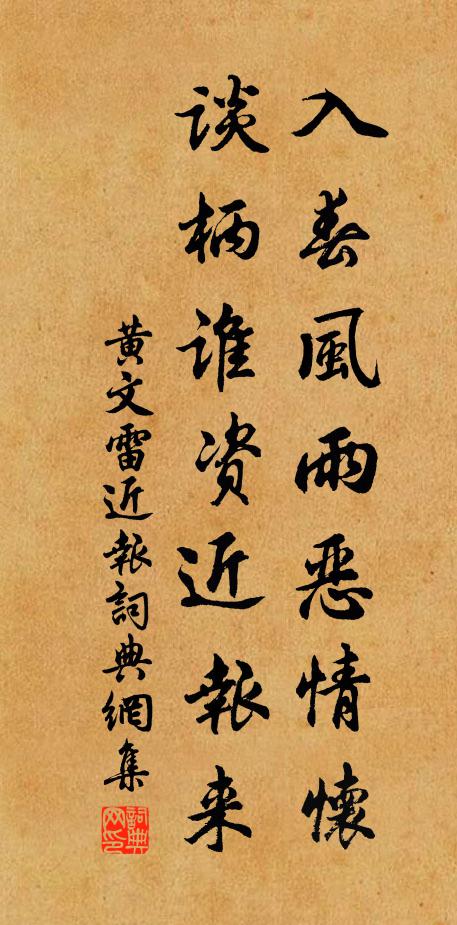 入春風雨恶情懷
谈柄谁资近報来
黃文雷近報詞典網集
詞典网印